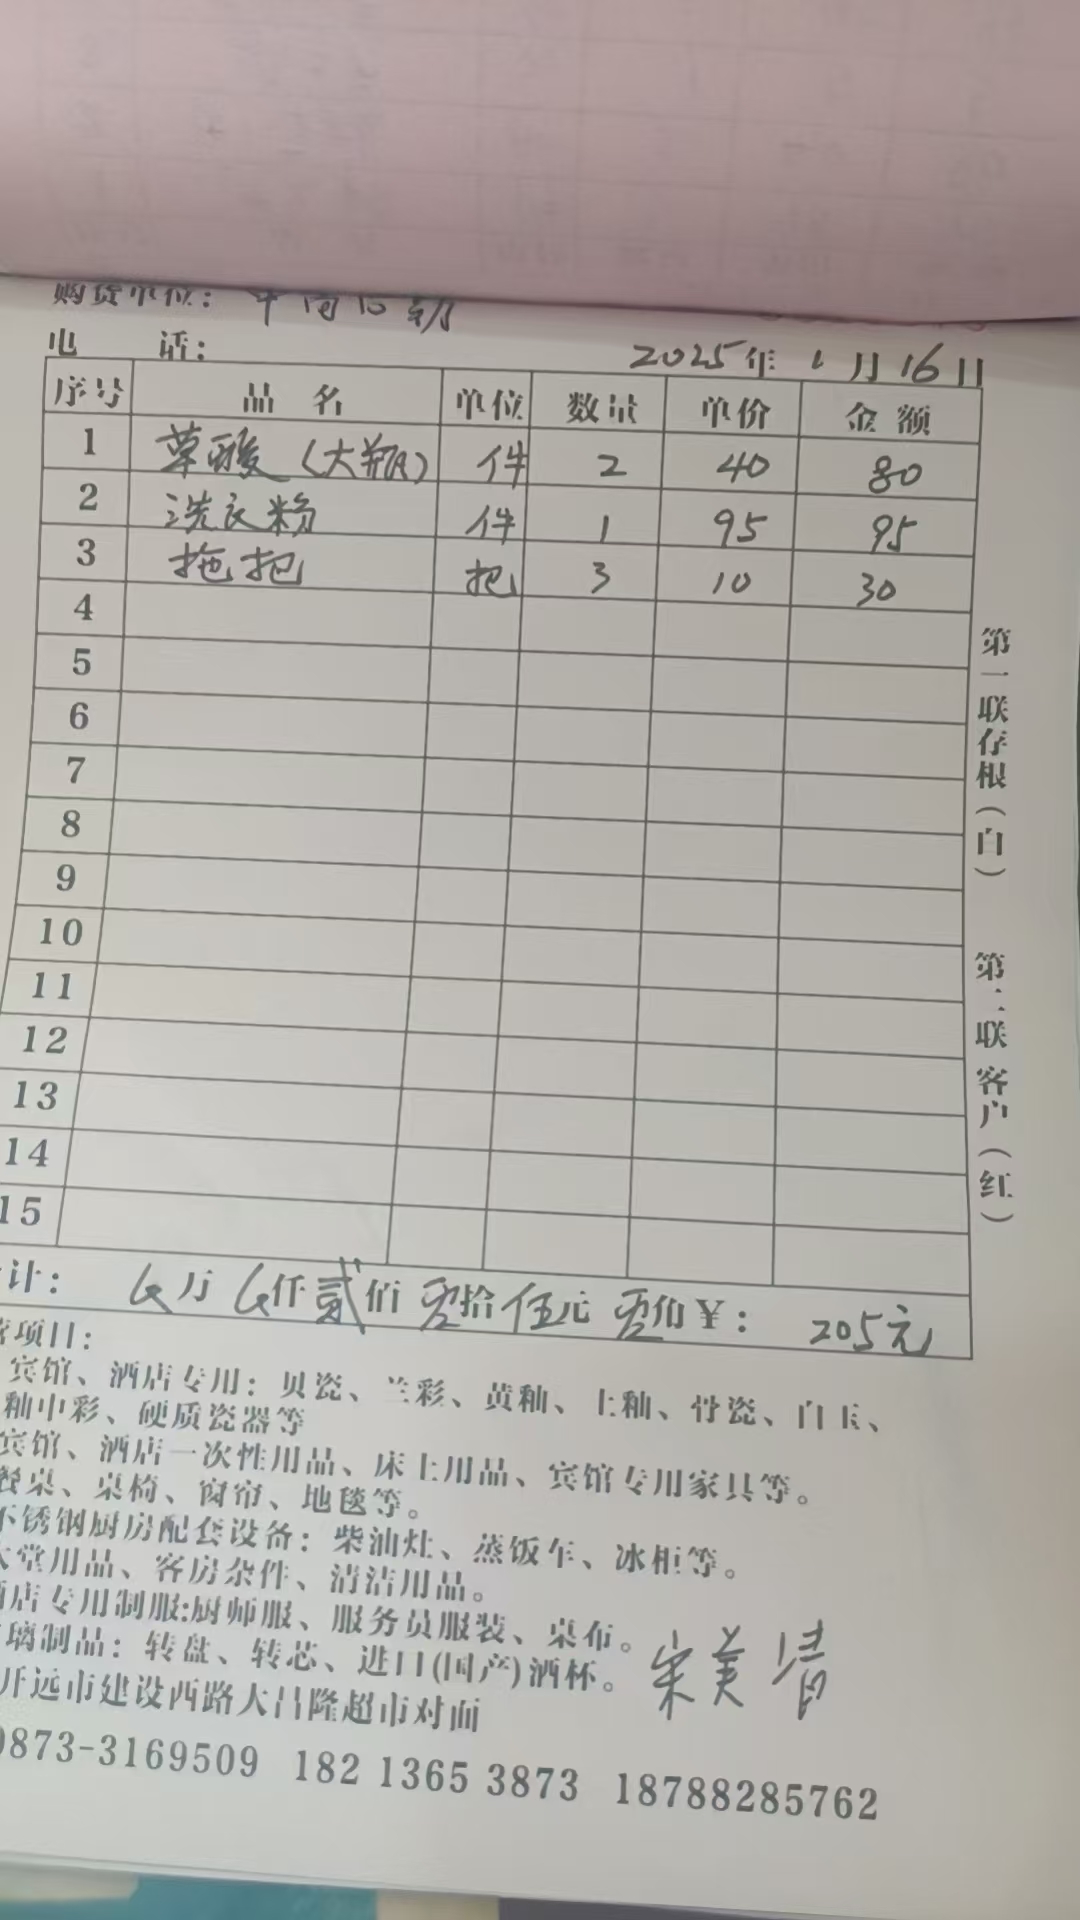 购货单位：
电 话： 2025年 1月16日
序号 品 名 单位 数量 单价 金 额
1 草酸（大瓶） 件 2 40 80
2 洗衣粉 件 1 95 95
3 拖把 把 3 10 30
4
5
6
7
8
9
10
11
12
13
14
15
计： 万 仟 贰佰 零拾 伍元 零角￥： 205元
项目：
宾馆、酒店专用：贝瓷、兰彩、黄釉、上釉、骨瓷、白玉、
釉中彩、硬质瓷器等
宾馆、酒店一次性用品、床上用品、宾馆专用家具等。
餐桌、桌椅、窗帘、地毯等。
不锈钢厨房配套设备：柴油灶、蒸饭车、冰柜等。
大堂用品、客房杂件、清洁用品。
酒店专用制服:厨师服、服务员服装、桌布。
璃制品：转盘、转芯、进口(国产)酒杯。 宋美
开远市建设西路大昌隆超市对面
0873-3169509 182 1365 3873 18788285762
第一联存根（白） 第二联客户（红）